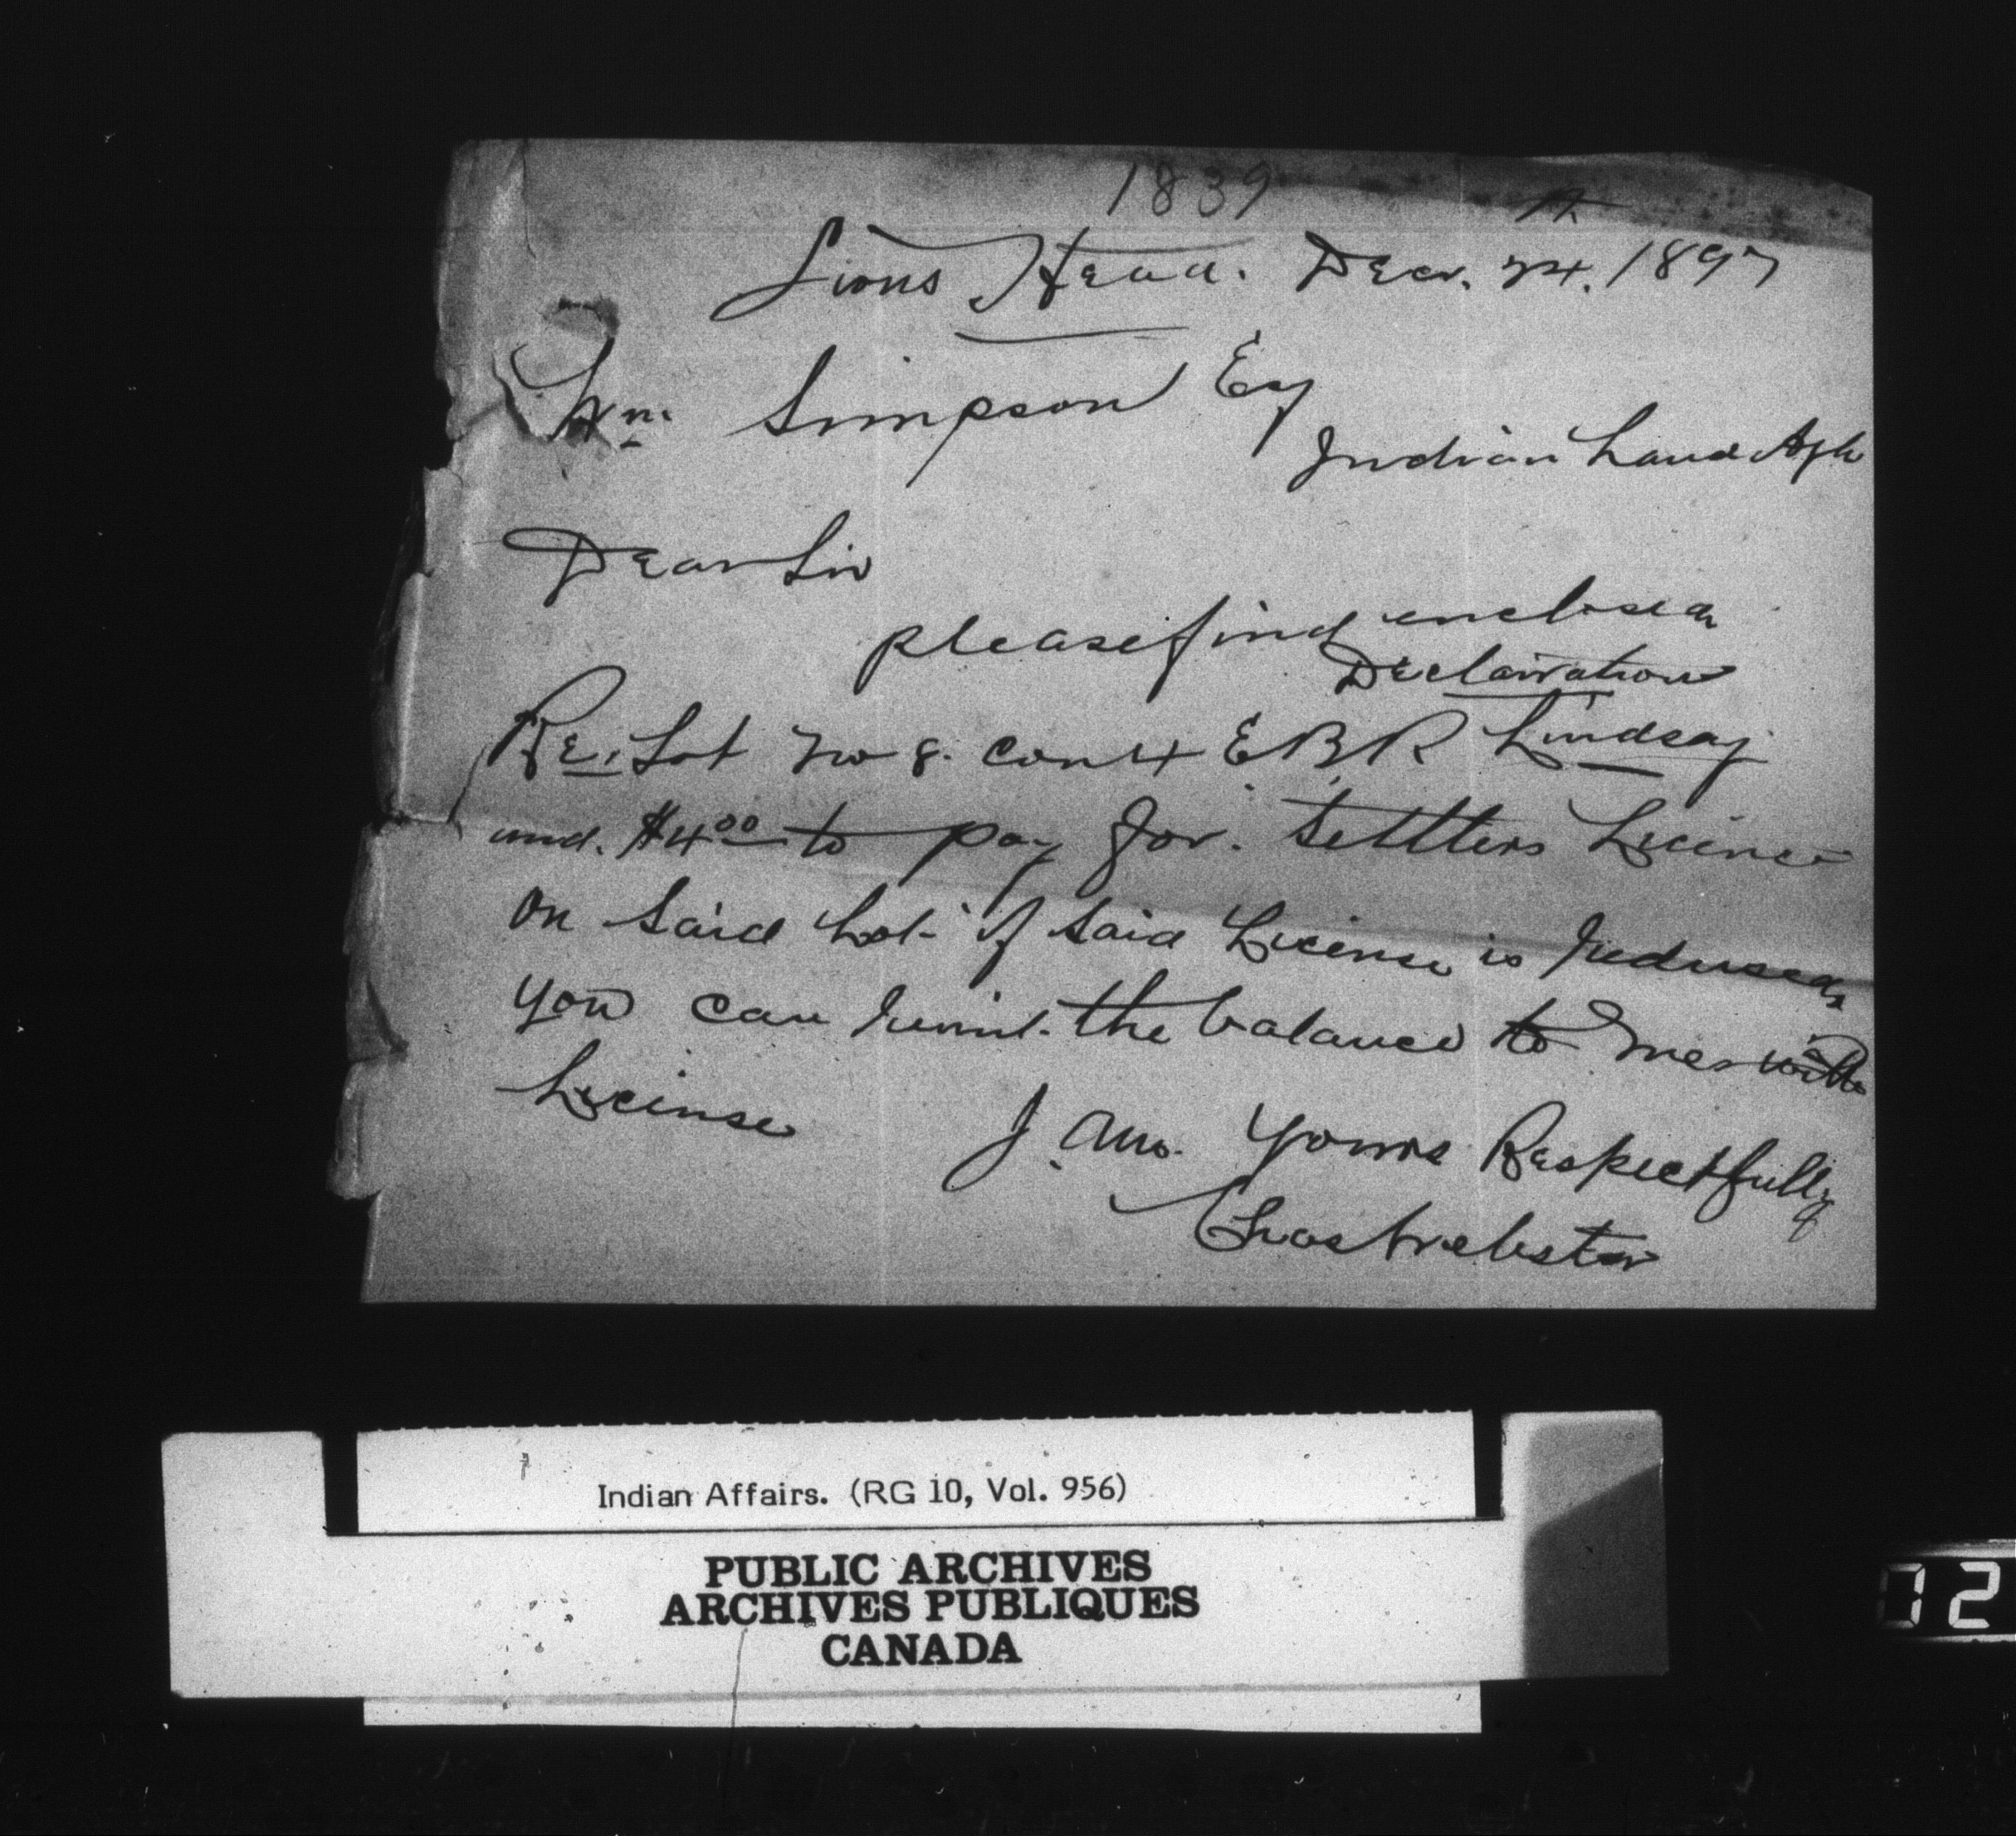 1839
Lions Head. Decr. 24th. 1897
Wm. Simpson Esq
Indian Land Agt
Dear Sir
please find enclosed
Declairation
Re. Lot No 8. con 4 EBR Lindsay
and. $4.00 to pay for. Settlers License
on said Lot- if said License is Reduced
you can remit. the balance to me with
License
I am. Yours Respectfully
Chas Webster
Indian Affairs. (RG 10, Vol. 956)
PUBLIC ARCHIVES
ARCHIVES PUBLIQUES
CANADA